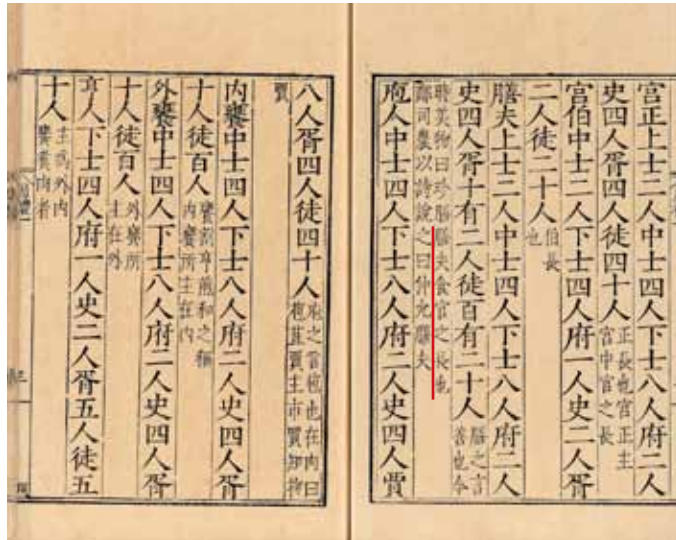 宮正上士二人中士四人下士八人府二人
史四人胥四人徒四十人正長也宮正主宮中官之長
宮伯中士二人下士四人府一人史二人胥
二人徒二十人伯長也
膳夫上士二人中士四人下士八人府二人
史四人胥十有二人徒百有二十人膳之言善也今
時美物曰珍膳膳夫食官之長也
鄭司農以詩說之曰仲允膳夫
庖人中士四人下士八人府二人史四人賈
八人胥四人徒四十人庖之言苞也裹肉曰苞苴賈主市賈知物
賈
內饔中士四人下士八人府二人史四人胥
十人徒百人饔割亨煎和之稱內饔所主在內
外饔中士四人下士八人府二人史四人胥
十人徒百人外饔所主在外
亨人下士四人府一人史二人胥五人徒五
十人主為外內饔煮肉者